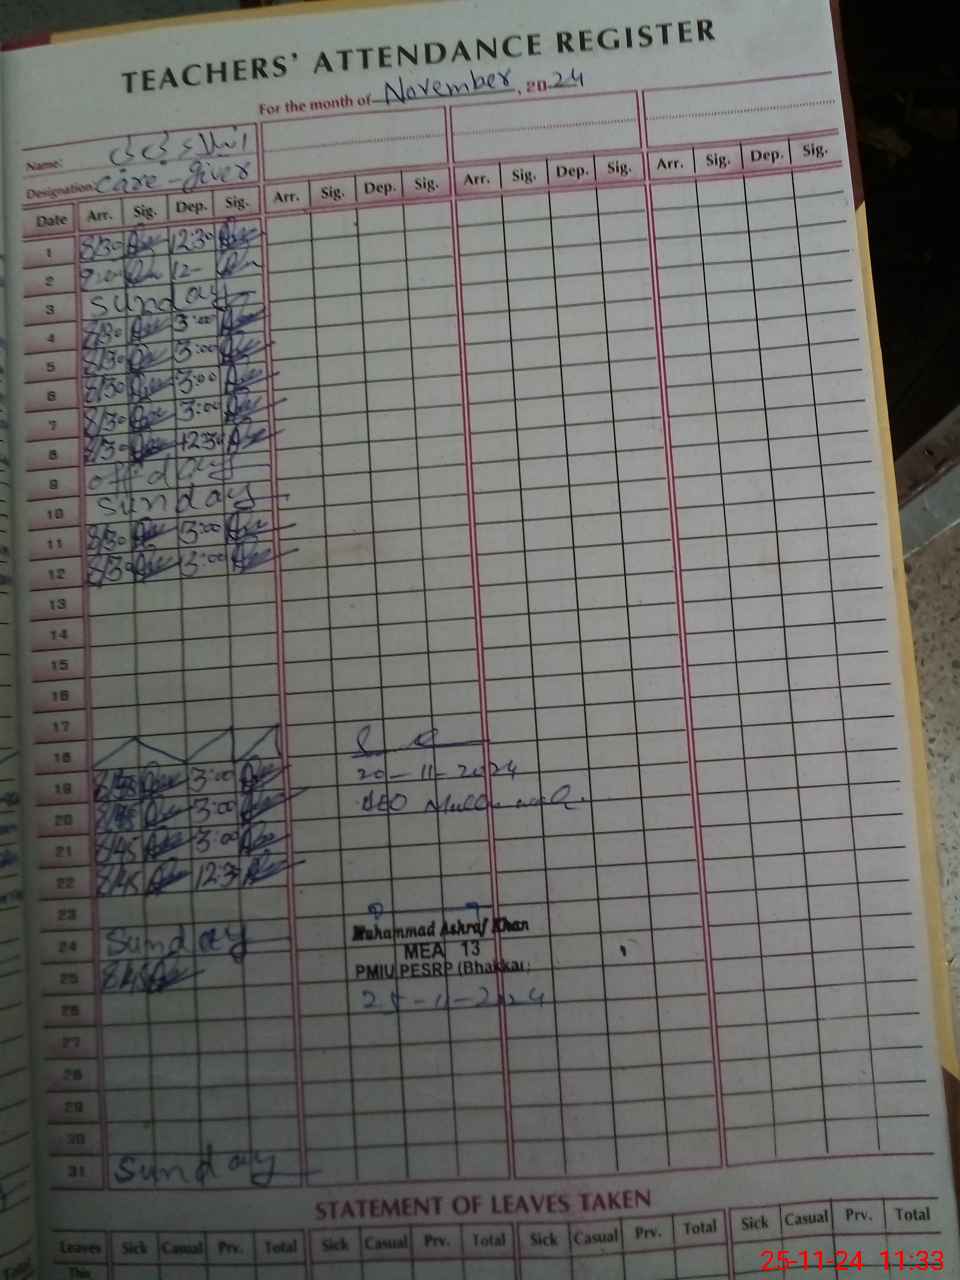 TEACHERS' ATTENDANCE REGISTER
For the month of November, 2024
Name:
Designation: Care-giver
Date Arr. Sig. Dep. Sig. Arr. Sig. Dep. Sig. Arr. Sig. Dep. Sig. Arr. Sig. Dep. Sig.
1 8/30 12:30
2 12-
3 Sunday
4 8/30 3:00
5 8/30 3:00
6 8/30 3:00
7 8/30 3:00
8 8/30 1230
9 off day
10 Sunday
11 8/30 3:00
12 8/30 3:00
13
14
15
16
17
18
19 8/45 3:00
20 8/45 3:00
20-11-2024
21 8/45 3:00
22 8/45 12:3
23
24 Sunday
25 8/45
Muhammad Ashraf Khan
MEA 13
PMIU PESRP (Bhakkar)
25-11-2024
26
27
28
29
30
31 Sunday
STATEMENT OF LEAVES TAKEN
Leaves Sick Casual Prv. Total Sick Casual Prv. Total Sick Casual Prv. Total Sick Casual Prv. Total
This
25-11-24 11:33